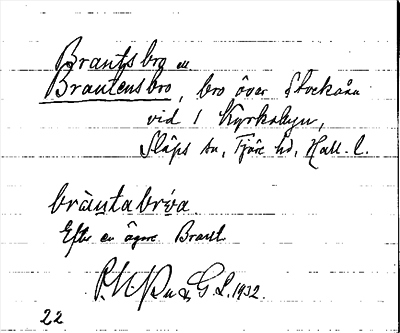 Brantsbro el.
Brantensbro, bro över Stockaån
vid 1 Kyrkobyn,
Släps sn, Fjäre hd, Hall. l.
bràntabróa
Efter en ägare Brant
G. L. 1932.
22